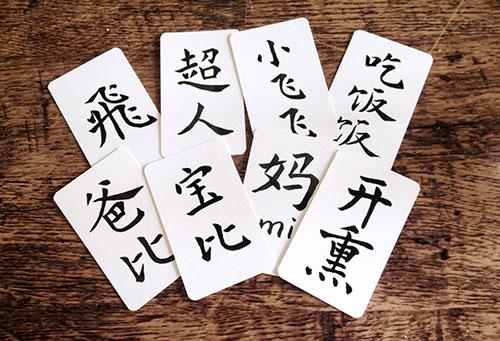 飛
超
人
小
飞
飞
吃
饭
饭
爸
比
宝
比
妈
mi
开
熏